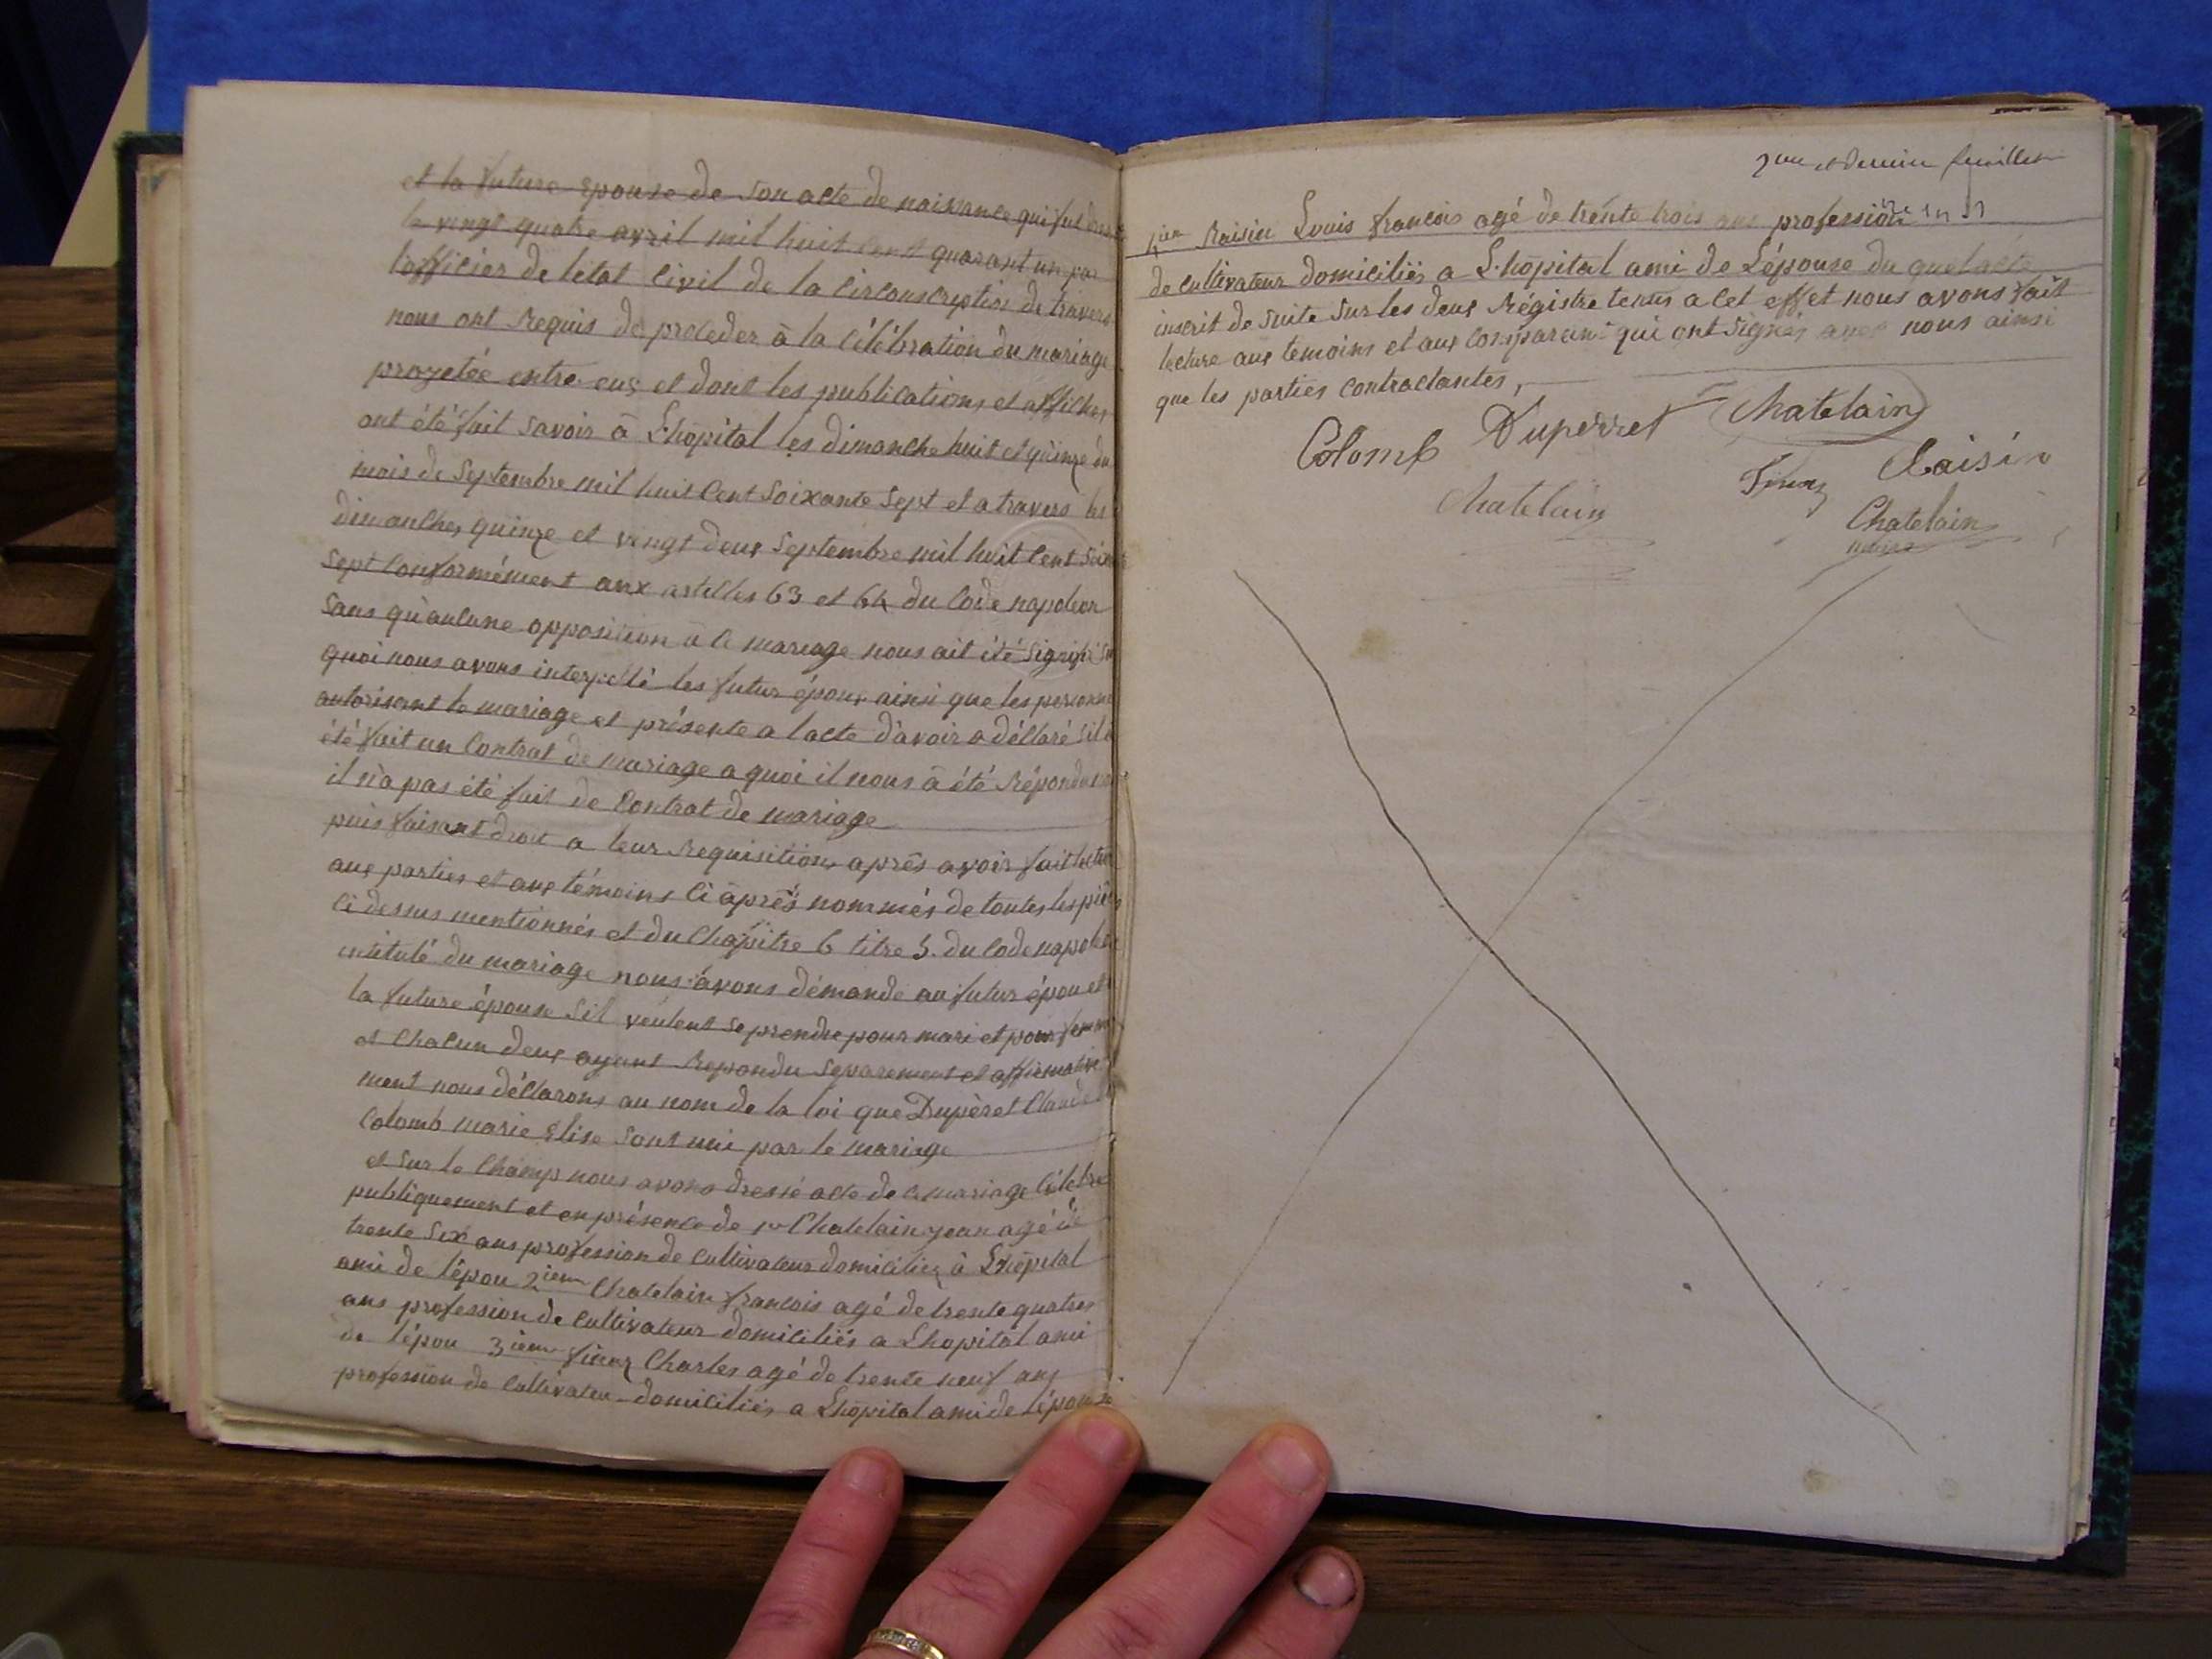 et la future epouse de son acte de naissance qui fut
le vingt quatre avril mil huit cent quarant un par
l'officier de letat Civil de la Circonscription de travers
nous ont requis de proceder à la Célébration du mariage
progetée entre eux et dont les publications et affiches
ont été fait savoir à L'hôpital les dimanche huit et quinze du
mois de Septembre mil huit Cent Soixante Sept et a travers les
dimanches quinze et vingt deux Septembre mil huit Cent
Sept Conformément aux articles 63 et 64 du Code napoleon
Sans qu'aucune opposition à ce mariage nous ait été signifié
quoi nous avons interpellé les futur époux ainsi que les personne
autorisant le mariage et présente a lacte d'avoir a déclaré sil
été fait un Contrat de mariage a quoi il nous à été répondu
il n'a pas été fait de Contrat de mariage
puis faisant droit a leur requisitions aprês avoir fait
aux parties et aux témoins Ci aprês nommés de toutes les
Ci dessus mentionnés et du Chapitre 6 titre 5. du Code
intitulé du mariage nous avons démandé au futur épou et
la future épouse sil veulent se prendre pour mari et pour
et Chacun deux ayant repondu separement et affirmative
ment nous déclarons au nom de la loi que Dupèret Claude
Colomb marie Elise sont uni par le mariage
et sur le Champ nous avons dressé acte de ce mariage Célebré
publiquement et en présence de 1er Chatelain jean agé de
trente Six ans profession de Cultivateur domiciliez à L'hôpital
ami de l'épou 2ieme Chatelain francois agé de trente quatres
ans profession de Cultivateur domiciliés a Lhopital ami
de l'épou 3ieme Charles agé de trente neuf ans
profession de Cultivateur domiciliés a Lhôpital ami de lépouse
2me et dernier feuillet
Raisin Louis francois agé de trente trois ans profession
de Cultivateur domiciliés a L'hôpital ami de L'épouse du quel acte
inscrit de suite sur les deux régistre tenus a cet effet nous avons fait
lecture aux temoins et aux Comparant qui ont signés avec nous ainsi
que les parties Contractantes,
Colomb Duperret Chatelain
Raisin
Chatelain
Chatelain
maire